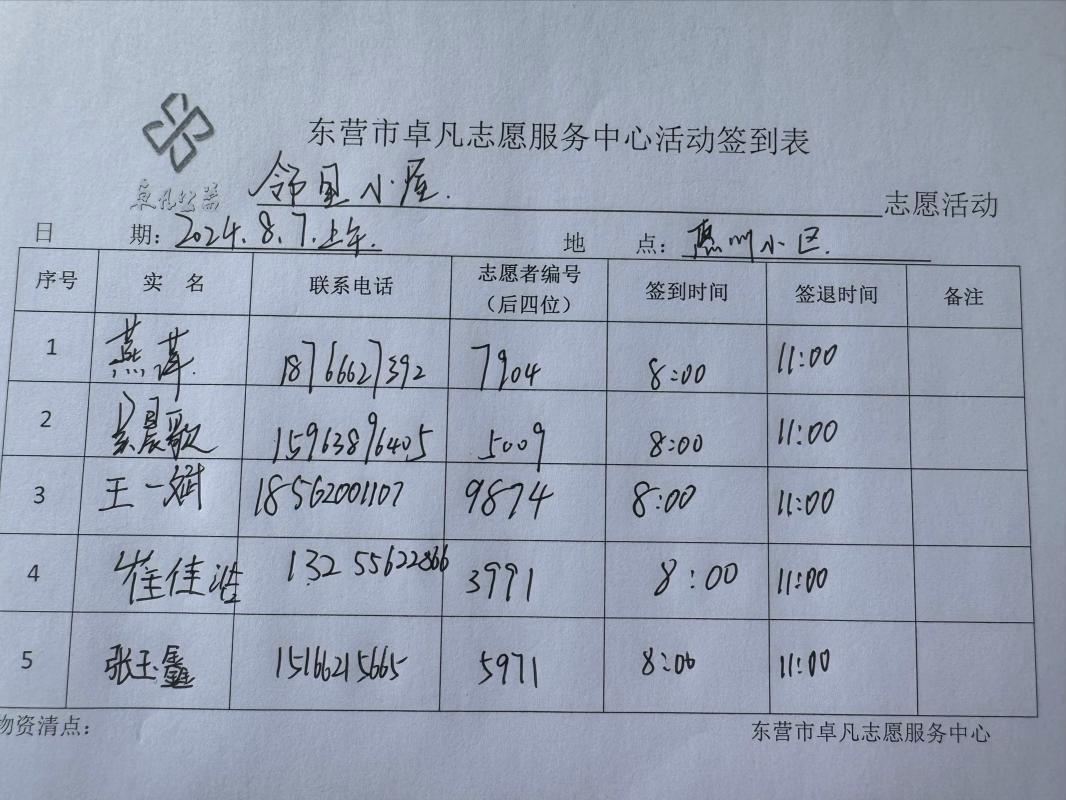 东营市卓凡志愿服务中心活动签到表
卓凡公益
邻里小屋. 志愿活动
日 期：2024.8.7.上午. 地 点：惠州小区.
序号 实 名 联系电话 志愿者编号（后四位） 签到时间 签退时间 备注
1 燕 18766627392 7904 8:00 11:00
2 晨歌 15963896405 5009 8:00 11:00
3 王一斌 18562001107 9874 8:00 11:00
4 崔佳 13255622866 3991 8:00 11:00
5 张玉鑫 15166215665 5971 8:00 11:00
物资清点： 东营市卓凡志愿服务中心